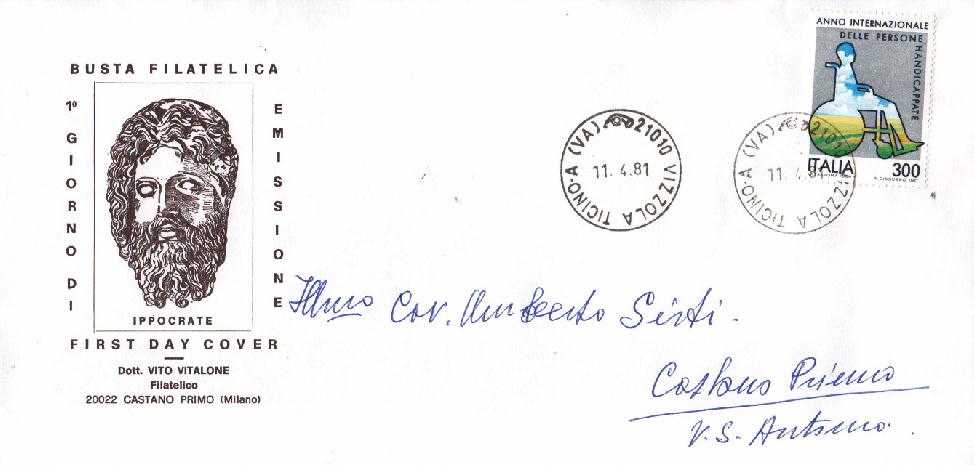 BUSTA FILATELICA
1º GIORNO DI
EMISSIONE
IPPOCRATE
FIRST DAY COVER
Dott. VITO VITALONE
Filatelico
20022 CASTANO PRIMO (Milano)
21010 VIZZOLA TICINO-A (VA)
11.4.81
21010 VIZZOLA TICINO-A (VA)
11.4.81
ANNO INTERNAZIONALE
DELLE PERSONE
HANDICAPPATE
ITALIA 300
Ill.mo Cav. Umberto Sirti.
Castano Primo
V. S. Antonio.